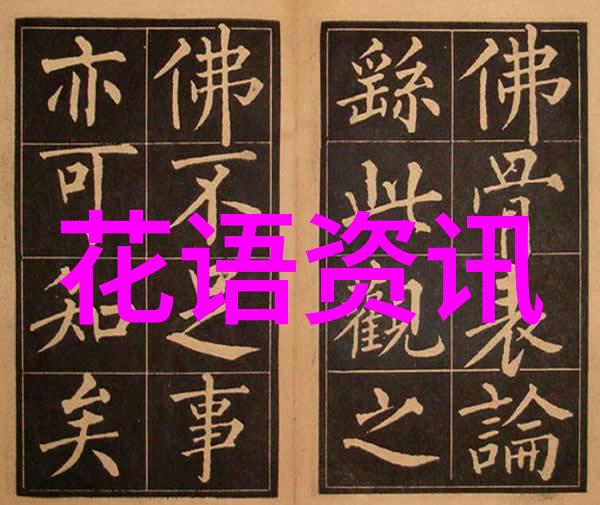 佛骨表論
繇此觀之
佛不足事
亦可知矣
花语资讯